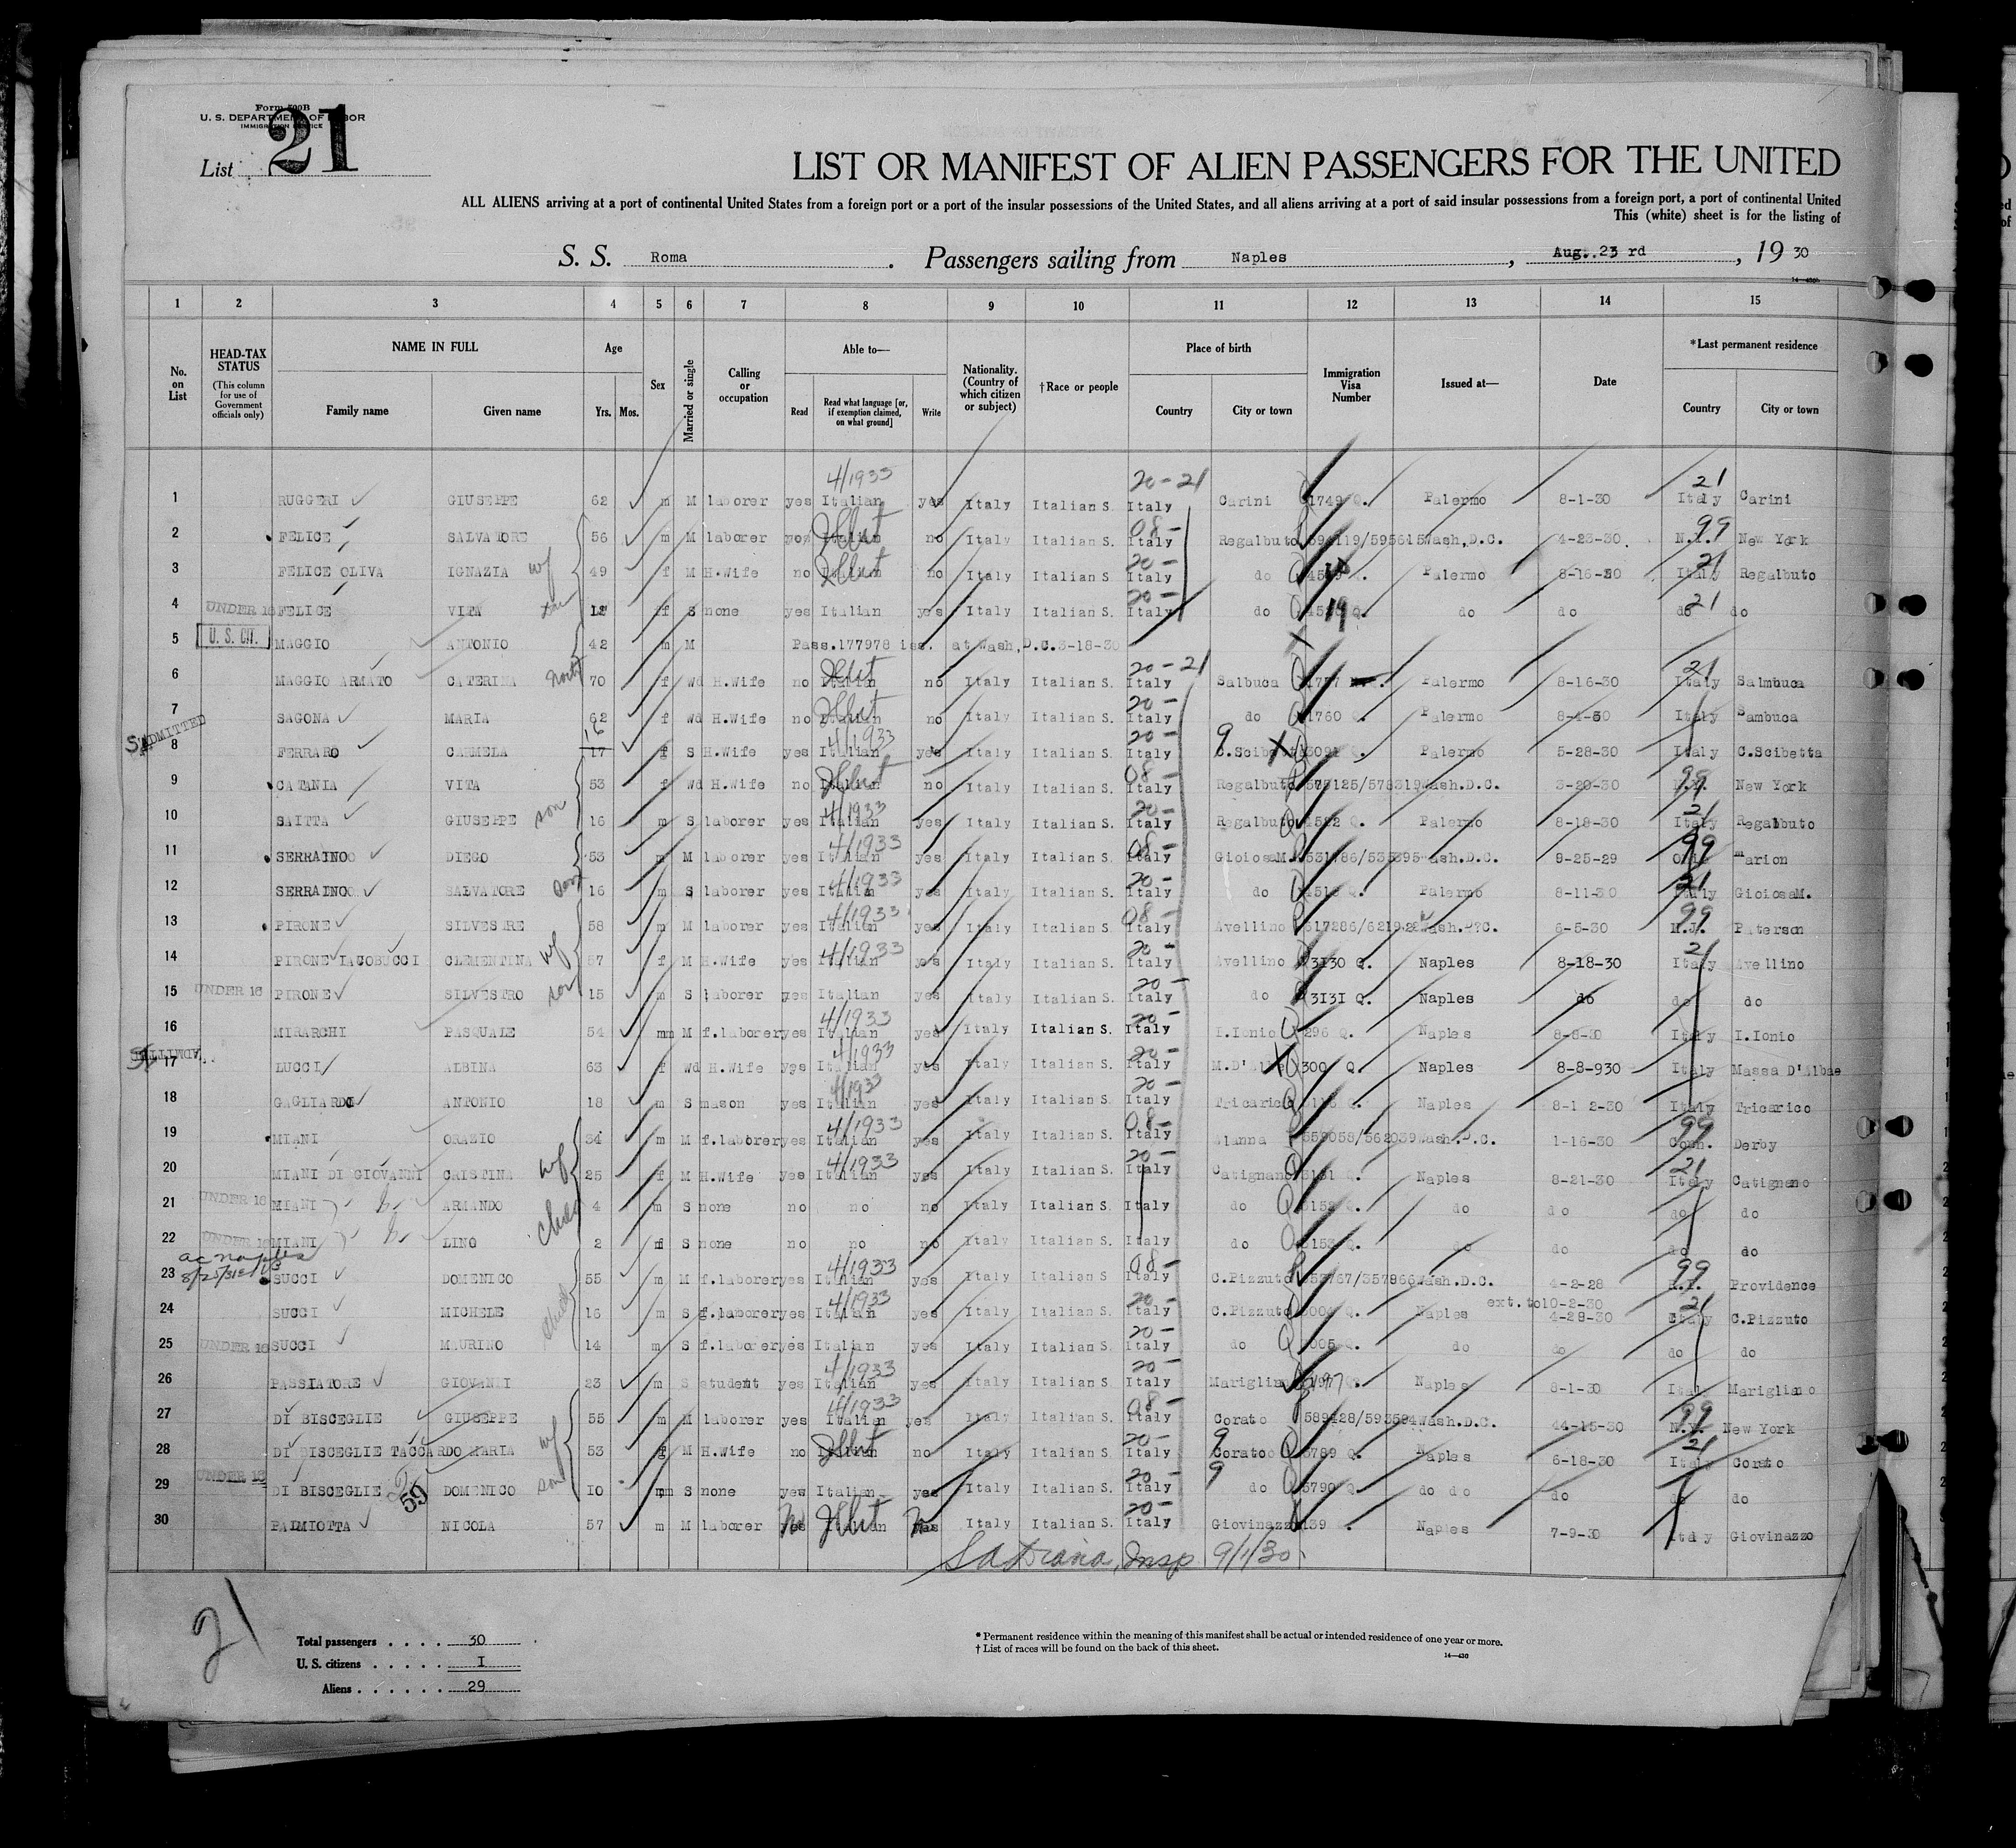 Form 500B
U. S. DEPARTMENT OF LABOR
IMMIGRATION SERVICE
List 21
LIST OR MANIFEST OF ALIEN PASSENGERS FOR THE UNITED
ALL ALIENS arriving at a port of continental United States from a foreign port or a port of the insular possessions of the United States, and all aliens arriving at a port of said insular possessions from a foreign port, a port of continental United
This (white) sheet is for the listing of
S. S. Roma. Passengers sailing from Naples, Aug. 23 rd, 19 30
1 2 3 4 5 6 7 8 9 10 11 12 13 14 15
No. on List
HEAD-TAX STATUS (This column for use of Government officials only)
NAME IN FULL Family name Given name
Age Yrs. Mos.
Sex
Married or single
Calling or occupation
Able to— Read Read what language [or, if exemption claimed, on what ground] Write
Nationality. (Country of which citizen or subject)
†Race or people
Place of birth Country City or town
Immigration Visa Number
Issued at—
Date
*Last permanent residence Country City or town
4/1933 20-21 21
1 RUGGERI GIUSEPPE 62 m M laborer yes Italian yes Italy Italian S. Italy Carini 1749 Q. Palermo 8-1-30 Italy Carini
2 FELICE SALVATORE 56 m M laborer yes Italian no Italy Italian S. Italy Regalbuto Wash,D.C. 4-23-30 N.Y. New York
3 FELICE OLIVA IGNAZIA wf 49 f M H.Wife no Italian no Italy Italian S. Italy do Palermo 8-16-30 Italy Regalbuto
4 UNDER 16 FELICE VITA f S none yes Italian yes Italy Italian S. Italy do do do do do
5 U. S. CIT. MAGGIO ANTONIO 42 m M Pass.177978 iss. at Wash,D.C.3-18-30
6 MAGGIO ARMATO CATERINA 70 f Wd H.Wife no Italian no Italy Italian S. Italy Salbuca 1757 Palermo 8-16-30 Italy Salmbuca
7 SAGONA MARIA 62 f Wd H.Wife no Italian no Italy Italian S. Italy do 1760 Q. Palermo Italy Sambuca
ADMITTED
8 FERRARO CARMELA 16 17 f S H.Wife yes Italian yes Italy Italian S. Italy C.Scibetta Palermo 5-28-30 Italy C.Scibetta
9 CATANIA VITA 53 f Wd H.Wife no Italian no Italy Italian S. Italy Regalbuto Wash.D.C. 3-20-30 N.Y. New York
10 SAITTA GIUSEPPE son 16 m S laborer yes Italian yes Italy Italian S. Italy Regalbuto Palermo 8-18-30 Italy Regalbuto
11 SERRAINO DIEGO 53 m M laborer yes Italian yes Italy Italian S. Italy GioiosaM. Wash.D.C. 9-25-29 Marion
12 SERRAINO SALVATORE son 16 m S laborer yes Italian yes Italy Italian S. Italy do Palermo 8-11-30 Italy GioiosaM.
13 PIRONE SILVESRE 58 m M laborer yes Italian yes Italy Italian S. Italy Avellino Wash.D.C. 6-5-30 N.J. Paterson
14 PIRONE IACOBUCCI CLEMENTINA wf 57 f M H.Wife yes Italian yes Italy Italian S. Italy Avellino 3130 Q. Naples 8-18-30 Italy Avellino
15 UNDER 16 PIRONE SILVESTRO son 15 m S laborer yes Italian yes Italy Italian S. Italy do 3131 Q. Naples do do do
16 MIRARCHI PASQUALE 54 m M f.laborer yes Italian yes Italy Italian S. Italy I.Ionio 296 Q. Naples 8-8-30 Italy I.Ionio
ADMITTED
17 LUCCI ALBINA 63 f Wd H.Wife yes Italian yes Italy Italian S. Italy M.D'Albe 300 Q. Naples 8-8-930 Italy Massa D'Albae
18 GAGLIARDI ANTONIO 18 m S mason yes Italian yes Italy Italian S. Italy Tricarico Naples 8-1 2-30 Italy Tricarico
19 MIANI ORAZIO 34 m M f.laborer yes Italian yes Italy Italian S. Italy Wash.D.C. 1-16-30 Conn. Derby
20 MIANI DI GIOVANNI CRISTINA wf 25 f M H.Wife yes Italian yes Italy Italian S. Italy Catignano Naples 8-21-30 Italy Catignano
21 UNDER 16 MIANI ARMANDO 4 m S none no no no Italy Italian S. Italy do do do do do
22 UNDER 16 MIANI LINO 2 S none no no no Italy Italian S. Italy do do do do do
23 SUCCI DOMENICO 55 m M f.laborer yes Italian yes Italy Italian S. Italy C.Pizzuto Wash.D.C. 4-2-28 R.I. Providence
ext.to10-2-30
24 SUCCI MICHELE 16 m S f.laborer yes Italian yes Italy Italian S. Italy C.Pizzuto Naples 4-28-30 Italy C.Pizzuto
25 UNDER 16 SUCCI MAURINO 14 m S f.laborer yes Italian yes Italy Italian S. Italy do do do do do
26 PASSIATORE GIOVANNI 23 m S student yes Italian yes Italy Italian S. Italy Naples 8-1-30 Italy Marigliano
27 DI BISCEGLIE GIUSEPPE 55 m M laborer yes Italian yes Italy Italian S. Italy Corato Wash.D.C. 44-15-30 N.Y. New York
28 DI BISCEGLIE TACCARDO MARIA wf 53 f M H.Wife no Italian no Italy Italian S. Italy Corato 5789 Q. Naples 6-18-30 Italy Corato
29 UNDER 16 DI BISCEGLIE 59 DOMENICO son 10 m S none yes Italian yes Italy Italian S. Italy do 5790 Q. do do do do do
30 PALMIOTTA NICOLA 57 m M laborer Italian Italy Italian S. Italy Giovinazzo 139 Naples 7-9-30 Italy Giovinazzo
Insp 9/1/30
21
Total passengers . . . . 30
U. S. citizens . . . . . I
Aliens . . . . . . 29
* Permanent residence within the meaning of this manifest shall be actual or intended residence of one year or more.
† List of races will be found on the back of this sheet.
14—430